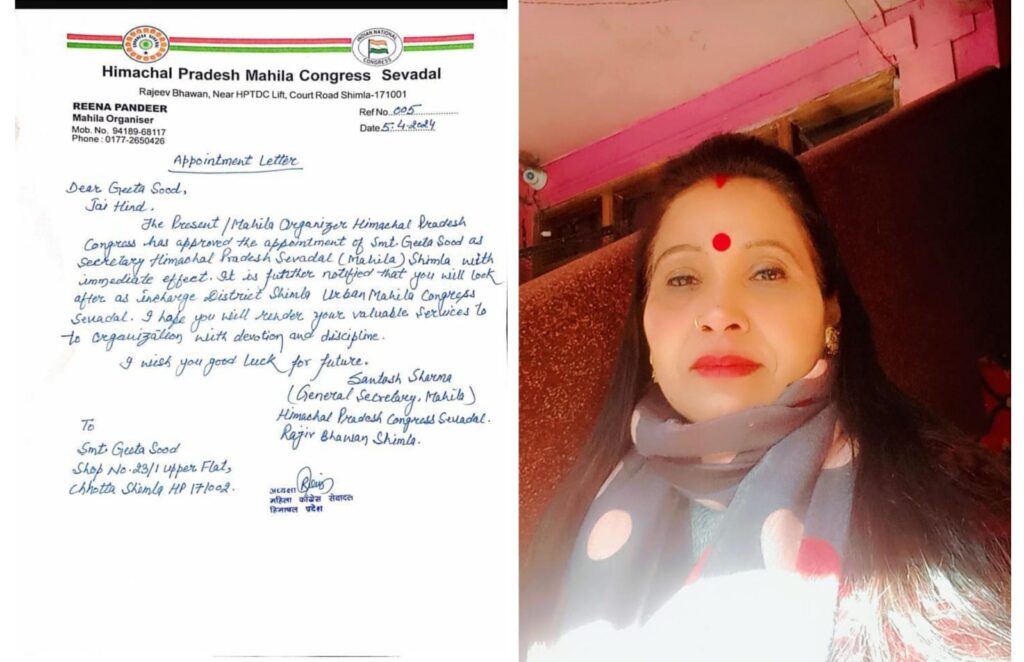 CONGRESS SEVADAL
INDIAN NATIONAL
CONGRESS
Himachal Pradesh Mahila Congress Sevadal
Rajeev Bhawan, Near HPTDC Lift, Court Road Shimla-171001
REENA PANDEER
Mahila Organiser
Mob. No. 94189-68117
Phone : 0177-2650426
Ref No. 005
Date 5.4.2024
Appointment Letter
Dear Geeta Sood,
Jai Hind.
The Present / Mahila Organizer Himachal Pradesh
Congress has approved the appointment of Smt. Geeta Sood as
Secretary Himachal Pradesh Sevadal (Mahila) Shimla with
immediate effect. It is further notified that you will look
after as incharge District Shimla Urban Mahila Congress
Sevadal. I hope you will render your valuable services to
to organization with devotion and discipline.
I wish you good luck for future.
Santosh Sharma
(General Secretary, Mahila)
Himachal Pradesh Congress Sevadal.
Rajiv Bhawan Shimla.
To
Smt. Geeta Sood
Shop No. 23/1 upper Flat,
Chhotta Shimla HP 171002.
अध्यक्षा
महिला काँग्रेस सेवादल
हिमाचल प्रदेश